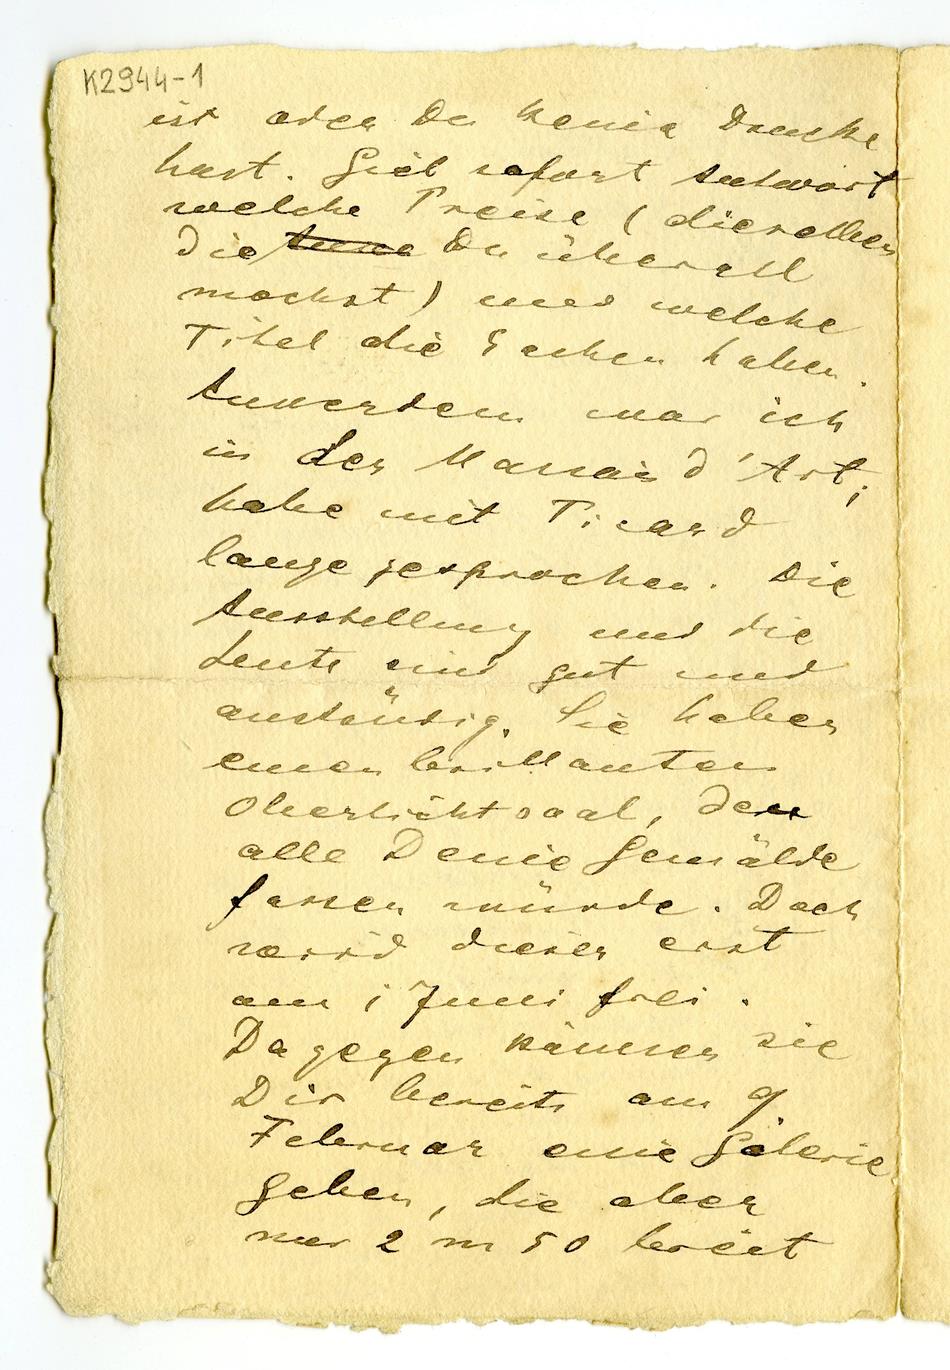 K2944-1
ist oder Du keine Drucke
hast. Gieb sofort Antwort
welche Preise (dieselben
die Du überall
machst) und welche
Titel die Sachen haben.
Ausserdem war ich
in der Maison d'Art;
habe mit Picard
lange gesprochen. Die
Ausstellung und die
Leute sind gut und
anständig. Sie haben
einen brillanten
Oberlichtsaal, den
alle Deine Gemälde
fassen würde. Doch
wird dieser erst
am 1 Juni frei.
Dagegen können sie
Dir bereits am 9
Februar eine Galerie
geben, die aber
nur 2 m 50 breit